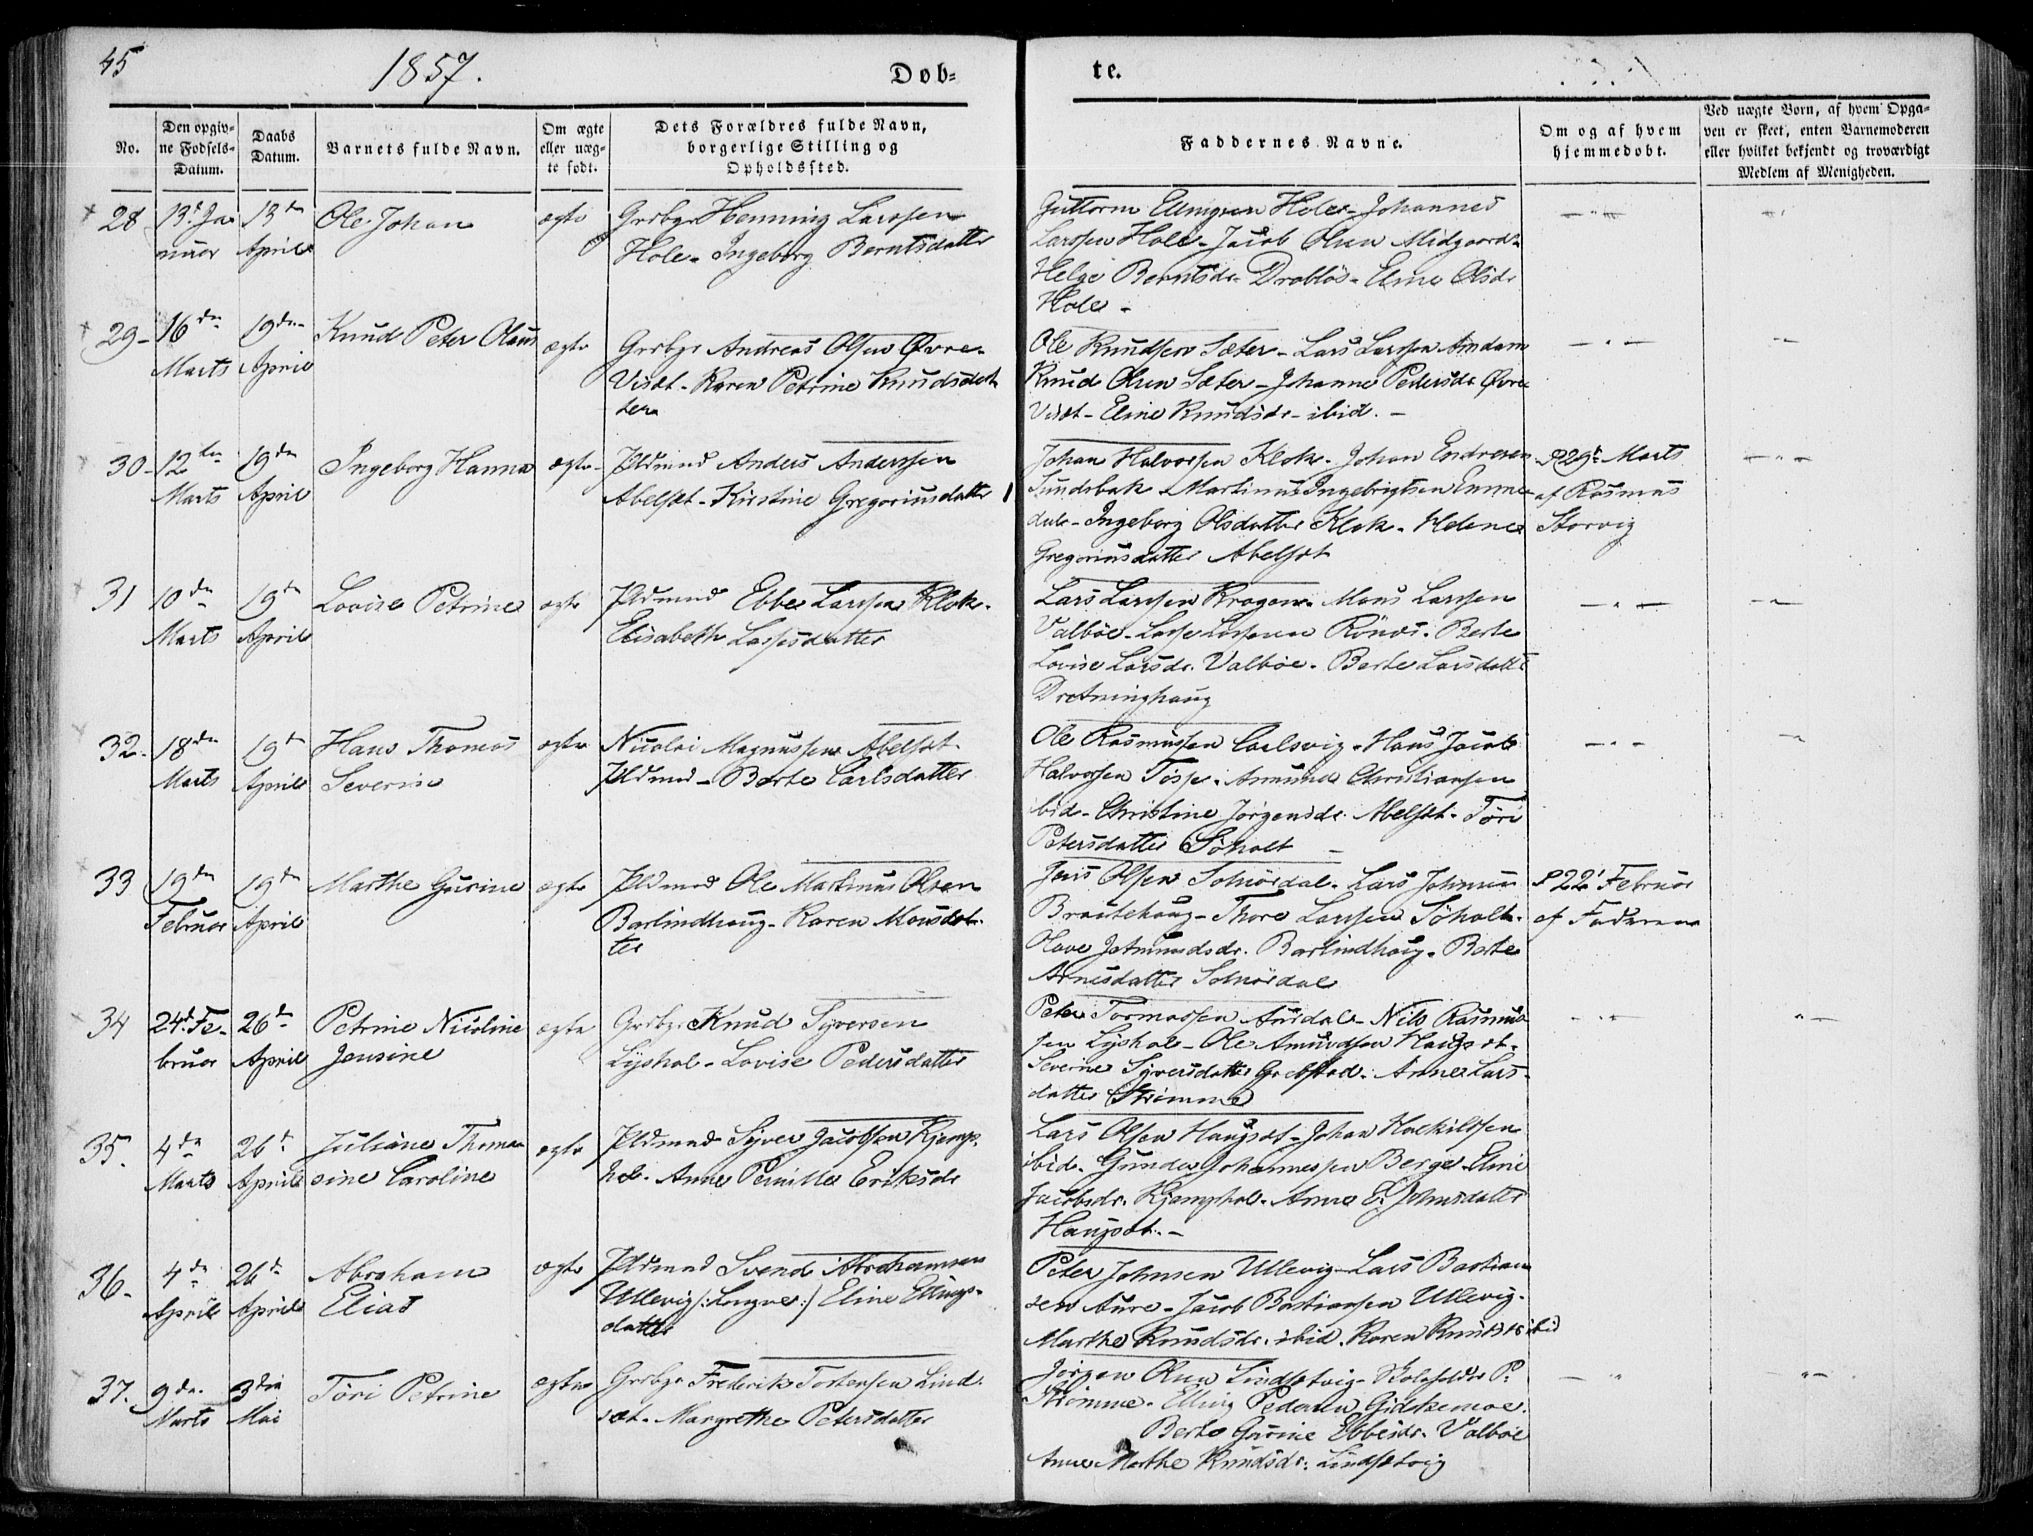 45
1857.
Døb-
te.
No.
Den opgiv-
ne Fødsels-
Datum.
Daabs
Datum.
Barnets fulde Navn.
Om ægte
eller uæg-
te født.
Dets Forældres fulde Navn,
borgerlige Stilling og
Opholdssted.
Faddernes Navne.
Om og af hvem
hjemmedøbt.
Ved uægte Børn, af hvem Opga-
ven er skeet, enten Barnemoderen
eller hvilket bekjendt og troværdigt
Medlem af Menigheden.
28
13d Ja-
nuar
13de
April
Ole Johan
ægte
Grdbgr Henning Larssen
Hole - Ingeborg Berntsdatter
Guttorm Ellingsen Hole - Johannes
Larssen Hole - Jacob Olsen Midgaard -
Helge Berntsdr Drabløs - Eline Olsdr
Hole -
29 -
16de
Marts
19de
April
Knud Peter Olaus
ægte
Grdbgr Andreas Olsen Øvre-
Viset - Karen Petrine Knudsdat-
ter
Ole Knudsen Sæter - Lars Larssen Amdam
Knud Olsen Sæter - Johanne Pedersdr Øvre
Viset - Eline Knudsdr - ibid. -
30 -
12te
Marts
19de
April
Ingeborg Hanna
ægte -
Pldmand Anders Anderssen
Abelsæt - Kirstine Gregoriusdatter
Johan Halvorsen Klok - Johan Endresen
Sundsbak - Martinus Ingebrigtsen Emme-
dale - Ingeborg Olsdatter Klok - Helene
Gregoriusdatter Abelsæt
29d Marts
af Rasmus
Storvig
31
10de
Marts
19de
April
Lovise Petrine
ægte
Pldmand Ebbe Larssen Klok -
Elisabeth Larsdatter
Lars Larssen Kragen - Mons Larssen
Valbøe - Lasse Larssen - Berte
Lovise Larsdr. Valbøe - Berte Larsdatter
Dretninghaug
32 -
18de
Marts
19de
April
Hans Thomas
Severin
ægte
Nicolai Magnussen Abelsæt -
Pldmnd - Berte Carlsdatter
Ole Rasmussen Carlsvig - Hans Jacob
Halvorsen Tøsse - Amund Christianssen
ibid - Christine Jørgensdr. Abelsæt - Tøri
Petersdatter Søholt -
33
19de
Februar
19de
April
Marthe Gurine
ægte
Pldmnd Ole Martinus Olsen
Barlindhaug - Karen Monsdat-
ter
Jens Olsen Solnørdal - Lars Johnsen
Brautehaug - Thore Larssen Søholt -
Olave Jetmundsdr. Barlindhaug - Berte
Arnesdatter Solnørdal
22' Februar
af Faderen
34
24d Fe-
bruar
26de
April
Petrine Nicoline
Jensine
ægte
Grdbgr Knud Syversen
Lyshol - Lovise Pedersdatter
Peter Tormossen - Nils Rasmus-
sen Lyshol - Ole Amundsen Haugset -
Severine Syversdatter Grebstad - Anne Lars-
datter Strømme
35.
4de
Marts
26de
April
Juliane Thoma-
sine Caroline
ægte
Pldmand Syver Jacobsen Kjemp-
hol - Anne Pernille Eriksdr
Lars Olsen Haugsæt - Johan Hackildsen
ibid - Gunder Johannessen Berge - Eline
Jacobsdr. Kjemphol - Anne E. Johnsdatter
Haugsæt. -
36 -
4de
April
26de
April
Abraham
Elias
ægte
Pldmand Svend Abrahamsen
Utlevig /: Langve :/ Eline Ellings-
datter
Peter Johnsen Utlevig - Lars Bastian-
sen Aure - Jacob Bastiansen Utlevig -
Marthe Knudsdr. ibid. Karen Knudsdr ibid
37.
9de
Marts
3die
Mai
Tøri Petrine
ægte
Grdbgr Frederik Torstensen Lind-
sæt - Margrethe Petersdatter
Jørgen Olsen Lindsetvig - Skoleholder P.
Strømme - Elling Pedersen Giskemoe.
Berte Gurine Ebbesdr. Valbøe
Anne Marthe Knudsdr: Lindsetvig